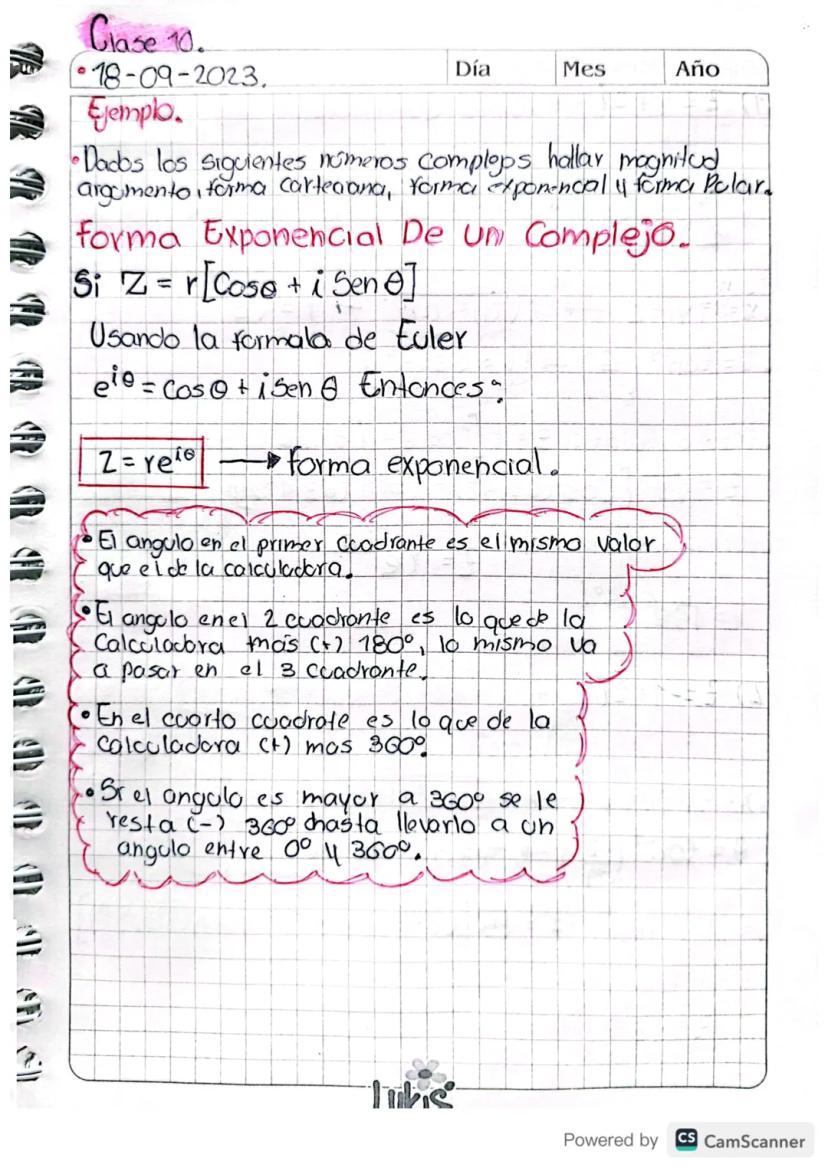 Clase 10.
• 18-09-2023.
Día Mes Año
Ejemplo.
• Dados los siguientes números complejos hallar magnitud
argumento, forma cartesiana, forma exponencial y forma Polar.
forma Exponencial De un Complejo.
Si Z = r[Cosθ + i Sen θ]
Usando la formala de Euler
e^{iθ} = Cos θ + i Sen θ Entonces:
Z = re^{iθ} → forma exponencial.
• El angulo en el primer cuadrante es el mismo valor
que el de la calculadora.
• El angulo en el 2 cuadrante es lo que de la
Calculadora más (+) 180°, lo mismo va
a pasar en el 3 cuadrante.
• En el cuarto cuadrate es lo que de la
calculadora (+) mas 360°.
• Si el angulo es mayor a 360° se le
resta (-) 360° hasta llevarlo a un
angulo entre 0° y 360°.
Lukis
Powered by CS CamScanner